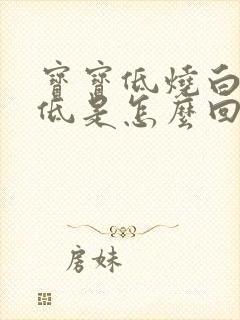 寶寶低燒白
低是怎麼回
房妹